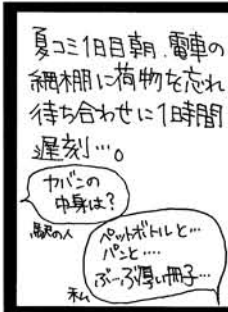 夏コミ1日目朝、電車の
網棚に荷物を忘れ
待ち合わせに1時間
遅刻…。
カバンの
中身は?
駅の人
ペットボトルと…
パンと‥‥
ぶ…ぶ厚い冊子…
私